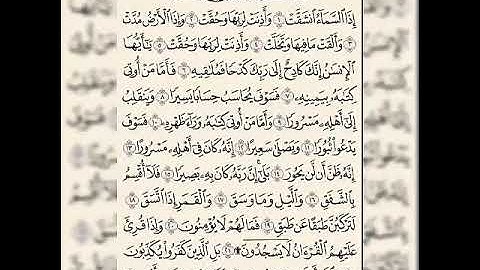 إِذَا ٱلسَّمَآءُ ٱنشَقَّتْ ١ وَأَذِنَتْ لِرَبِّهَا وَحُقَّتْ ٢ وَإِذَا ٱلْأَرْضُ مُدَّتْ
٣ وَأَلْقَتْ مَا فِيهَا وَتَخَلَّتْ ٤ وَأَذِنَتْ لِرَبِّهَا وَحُقَّتْ ٥ يَٰٓأَيُّهَا
ٱلْإِنسَٰنُ إِنَّكَ كَادِحٌ إِلَىٰ رَبِّكَ كَدْحًا فَمُلَٰقِيهِ ٦ فَأَمَّا مَنْ أُوتِيَ
كِتَٰبَهُۥ بِيَمِينِهِۦ ٧ فَسَوْفَ يُحَاسَبُ حِسَابًا يَسِيرًا ٨ وَيَنقَلِبُ
إِلَىٰٓ أَهْلِهِۦ مَسْرُورًا ٩ وَأَمَّا مَنْ أُوتِيَ كِتَٰبَهُۥ وَرَآءَ ظَهْرِهِۦ ١٠ فَسَوْفَ
يَدْعُوا۟ ثُبُورًا ١١ وَيَصْلَىٰ سَعِيرًا ١٢ إِنَّهُۥ كَانَ فِيٓ أَهْلِهِۦ مَسْرُورًا ١٣
إِنَّهُۥ ظَنَّ أَن لَّن يَحُورَ ١٤ بَلَىٰٓ إِنَّ رَبَّهُۥ كَانَ بِهِۦ بَصِيرًا ١٥ فَلَآ أُقْسِمُ
بِٱلشَّفَقِ ١٦ وَٱلَّيْلِ وَمَا وَسَقَ ١٧ وَٱلْقَمَرِ إِذَا ٱتَّسَقَ ١٨
لَتَرْكَبُنَّ طَبَقًا عَن طَبَقٍ ١٩ فَمَا لَهُمْ لَا يُؤْمِنُونَ ٢٠ وَإِذَا قُرِئَ
عَلَيْهِمُ ٱلْقُرْءَانُ لَا يَسْجُدُونَ ۩ ٢١ بَلِ ٱلَّذِينَ كَفَرُوا۟ يُكَذِّبُونَ